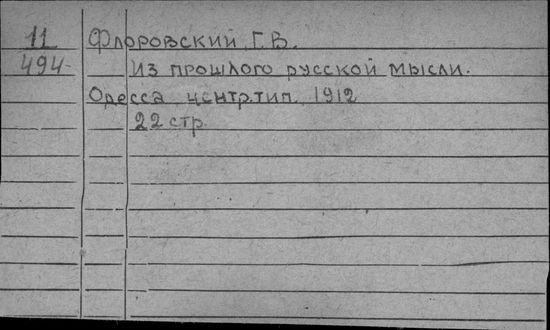 11 Флоровский Г.В.
494 Из прошлого русской мысли.
Одесса центр.тип. 1912
22 стр.